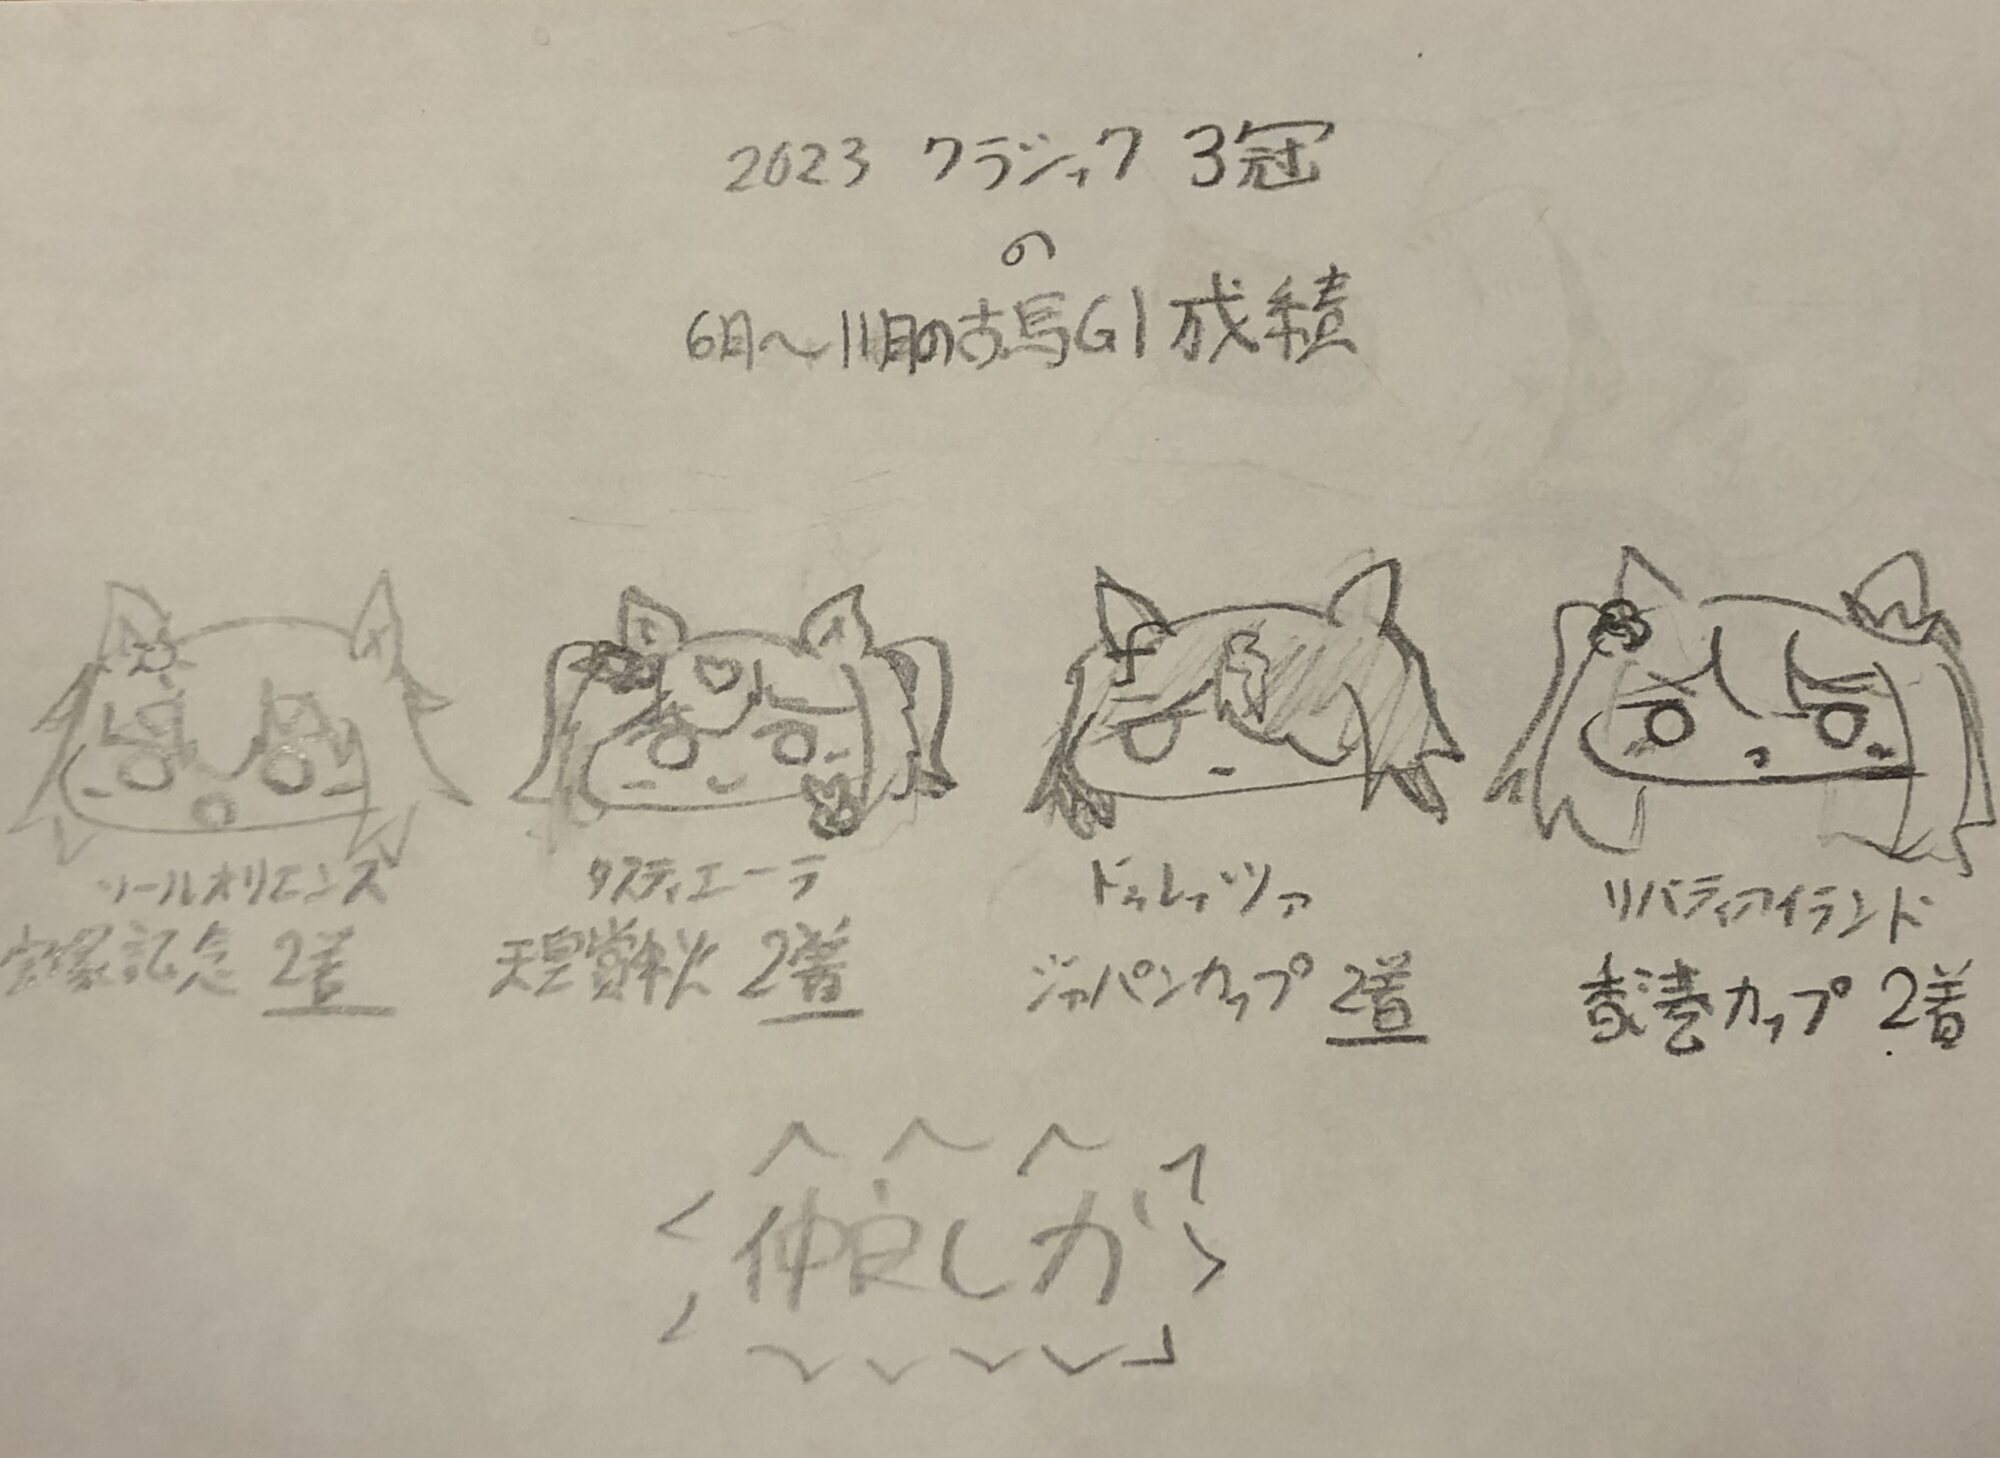 2023 クラシック 3冠
の
6月〜11月の古馬G1成績
ソールオリエンス
タスティエーラ
ドゥレッツァ
リバティアイランド
宝塚記念 2着
天皇賞秋 2着
ジャパンカップ 2着
香港カップ 2着
仲良しか